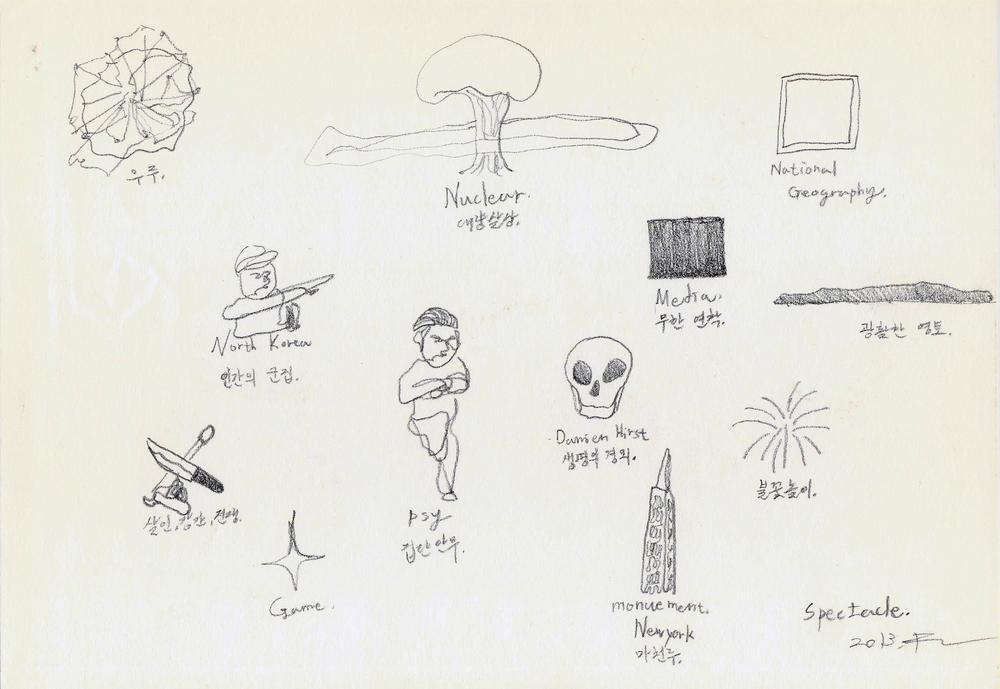 우주.
Nuclear.
대량살상.
National
Geography.
Media.
무한 연착.
광활한 영토.
North Korea
인간의 군집.
Damien Hirst
생명의 경외.
불꽃놀이.
살인, 강간, 전쟁.
Psy
집단 안무.
Game.
monuement.
Newyork
마천루.
Spectacle.
2013.